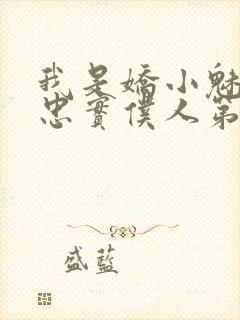 我是嬌小魅
忠實僕人第
盛藍